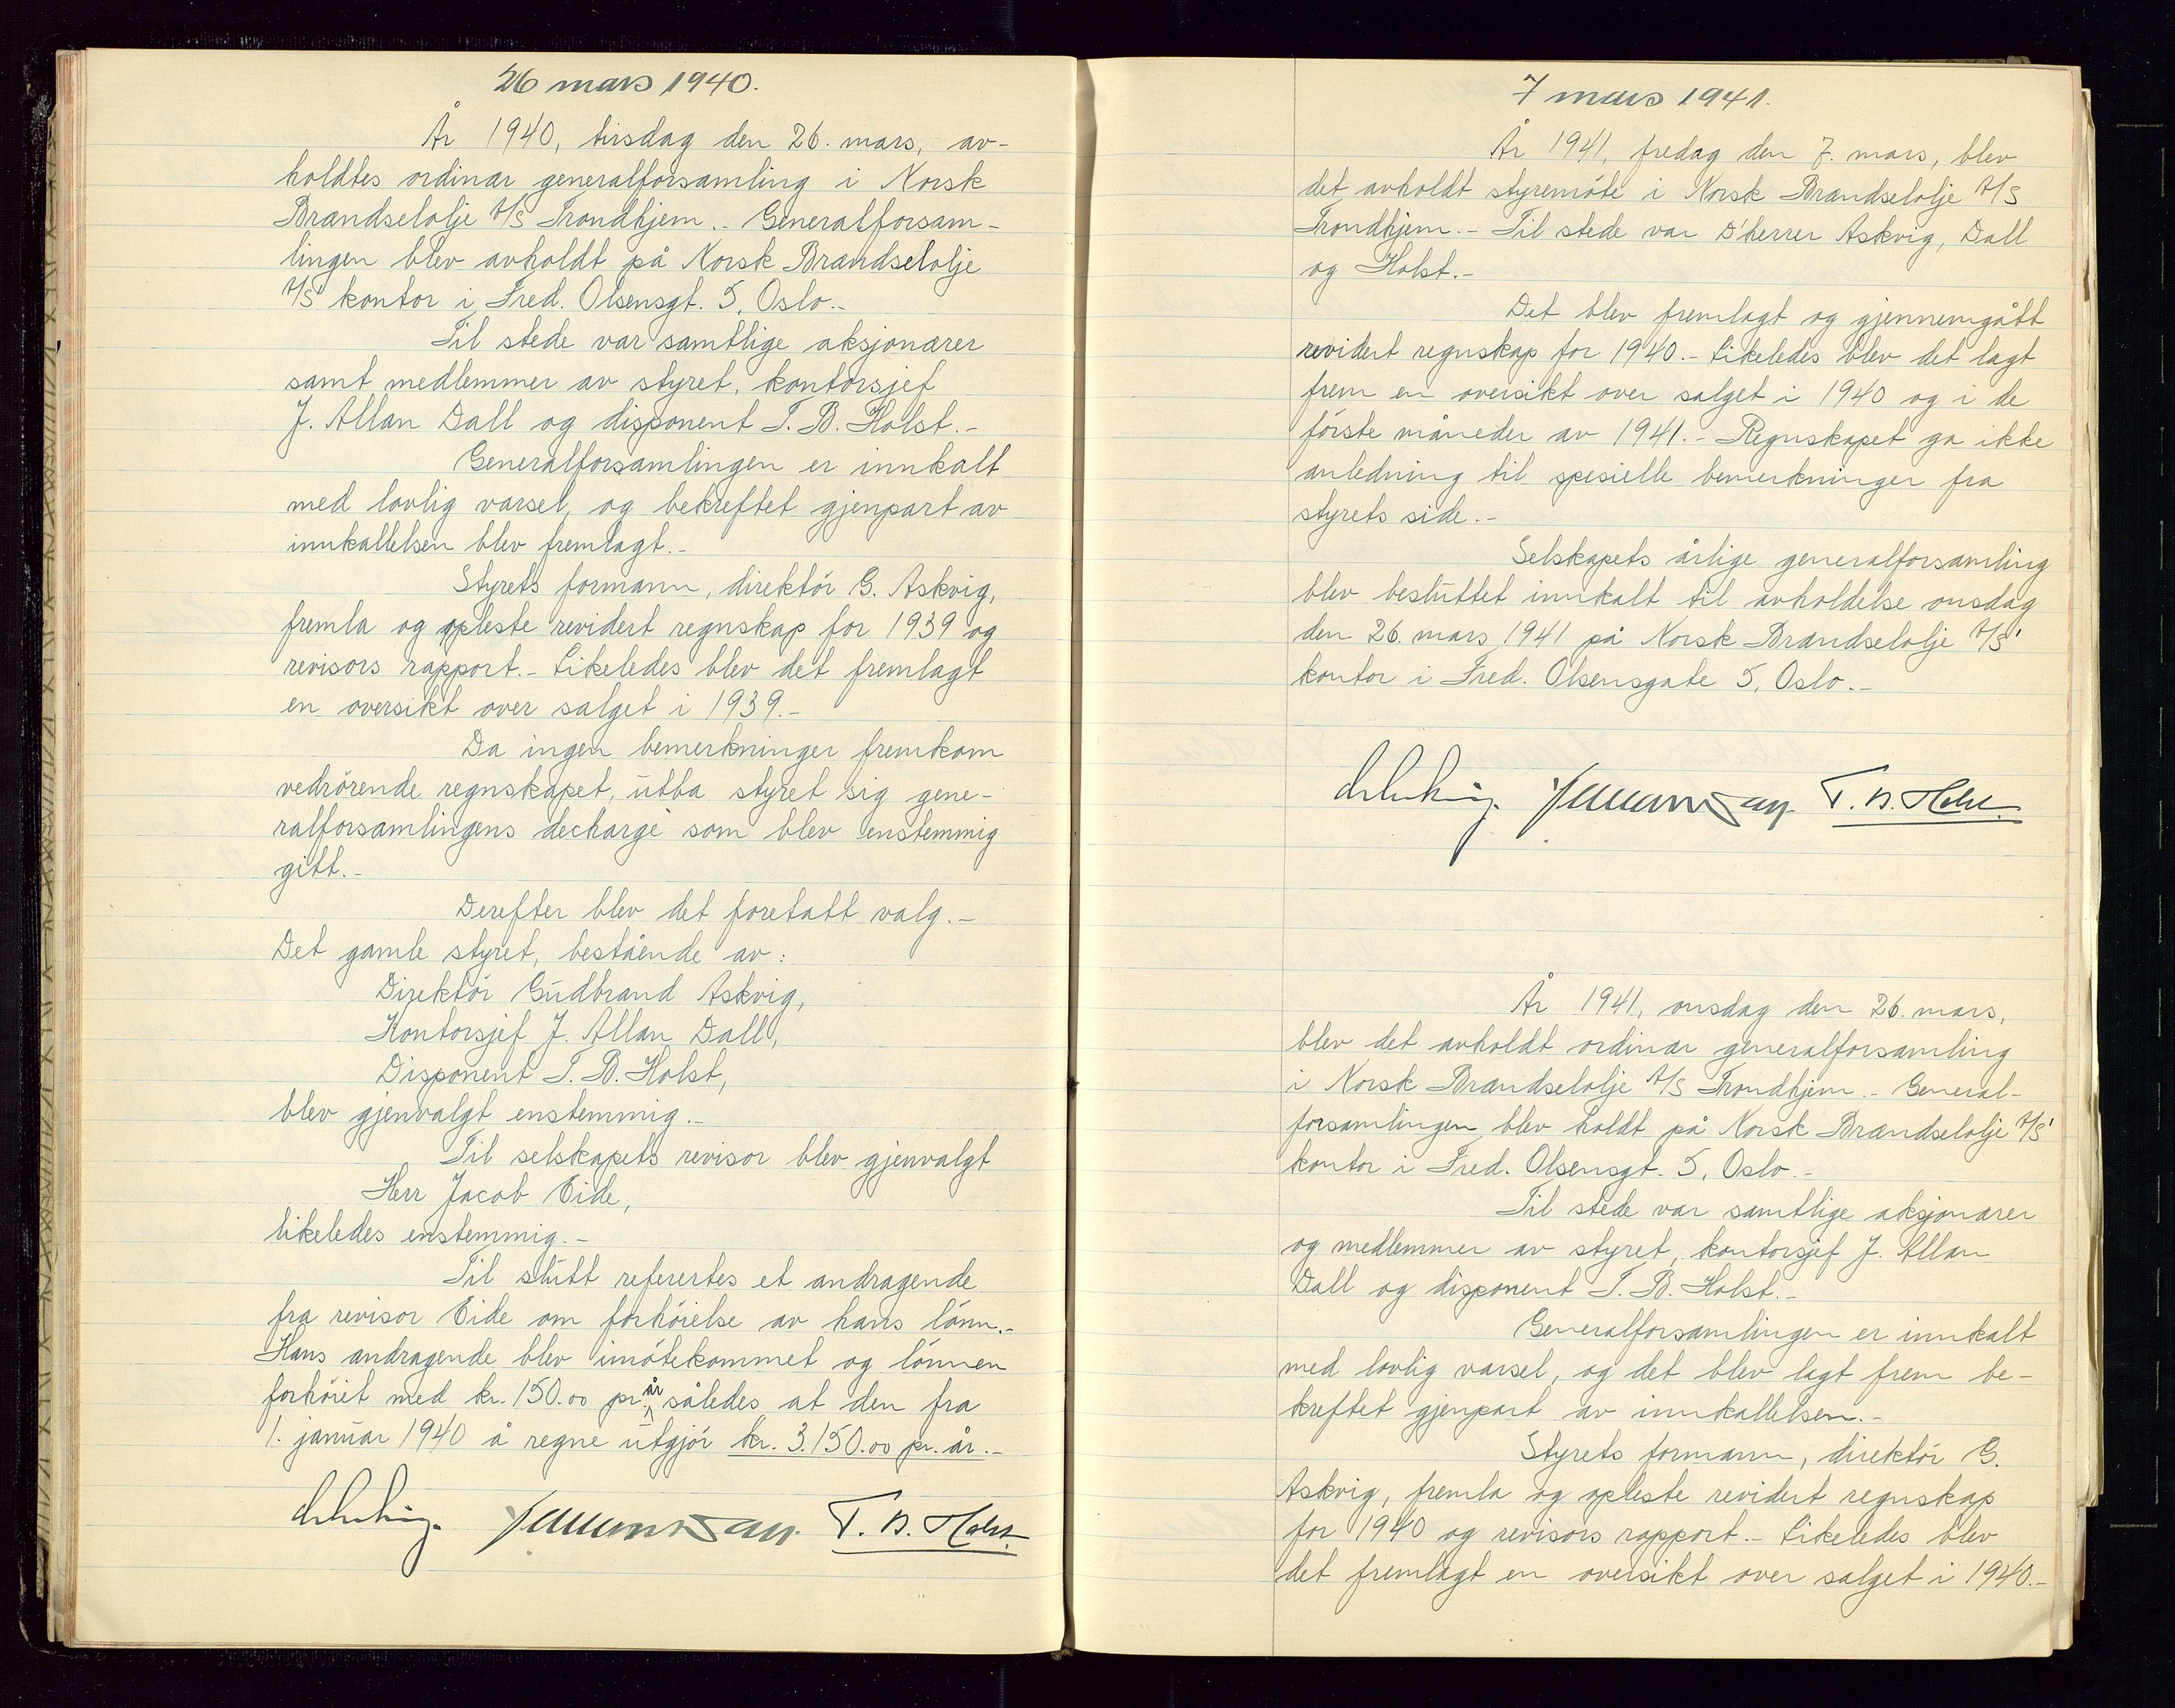 26 mars 1940.
År 1940, tirsdag den 26. mars, av-
holdtes ordinær generalforsamling i Norsk
Brændselolje A/S Trondhjem.- Generalforsam-
lingen blev avholdt på Norsk Brændselolje
A/S' kontor i Fred. Olsensgt. 5, Oslo.-
Til stede var samtlige aksjonærer
samt medlemmer av styret, kontorsjef
J. Allan Dall og disponent T. B. Holst.-
Generalforsamlingen er innkalt
med lovlig varsel, og bekreftet gjenpart av
innkallelsen blev fremlagt.-
Styrets formann, direktör G. Askvig,
fremla og opleste revidert regnskap for 1939 og
revisors rapport.- Likeledes blev det fremlagt
en oversikt over salget i 1939.-
Da ingen bemerkninger fremkom
vedrörende regnskapet, utba styret sig gene-
ralforsamlingens decharge som blev enstemmig
gitt.-
Derefter blev det foretatt valg.-
Det gamle styret, bestående av:
Direktör Gudbrand Askvig,
Kontorsjef J. Allan Dall,
Disponent T. B. Holst,
blev gjenvalgt enstemmig.-
Til selskapets revisor blev gjenvalgt
Herr Jacob Eide,
likeledes enstemmig.-
Til slutt referertes et andragende
fra revisor Eide om forhöielse av hans lönn.-
Hans andragende blev imötekommet og lönnen
forhöiet med kr. 150.00 pr. år således at den fra
1. januar 1940 å regne utgjör kr. 3.150.00 pr. år.-
T. B. Holst.
7 mars 1941.
År 1941, fredag den 7. mars, blev
det avholdt styremöte i Norsk Brændselolje A/S
Trondhjem.- Til stede var D'herrer Askvig, Dall
og Holst.-
Det blev fremlagt og gjennemgått
revidert regnskap for 1940.- Likeledes blev det lagt
frem en oversikt over salget i 1940 og i de
förste måneder av 1941.- Regnskapet ga ikke
anledning til spesielle bemerkninger fra
styrets side.-
Selskapets årlige generalforsamling
blev besluttet innkalt til avholdelse onsdag
den 26. mars 1941 på Norsk Brændselolje A/S'
kontor i Fred. Olsensgate 5, Oslo.-
T. B. Holst.
År 1941, onsdag den 26. mars,
blev det avholdt ordinær generalforsamling
i Norsk Brændselolje A/S Trondhjem.- General-
forsamlingen blev holdt på Norsk Brændselolje A/S'
kontor i Fred. Olsensgt. 5, Oslo.-
Til stede var samtlige aksjonærer
og medlemmer av styret, kontorsjef J. Allan
Dall og disponent T. B. Holst.-
Generalforsamlingen er innkalt
med lovlig varsel, og det blev lagt frem be-
kreftet gjenpart av innkallelsen.-
Styrets formann, direktör G.
Askvig, fremla og opleste revidert regnskap
for 1940 og revisors rapport.- Likeledes blev
det fremlagt en oversikt over salget i 1940.-